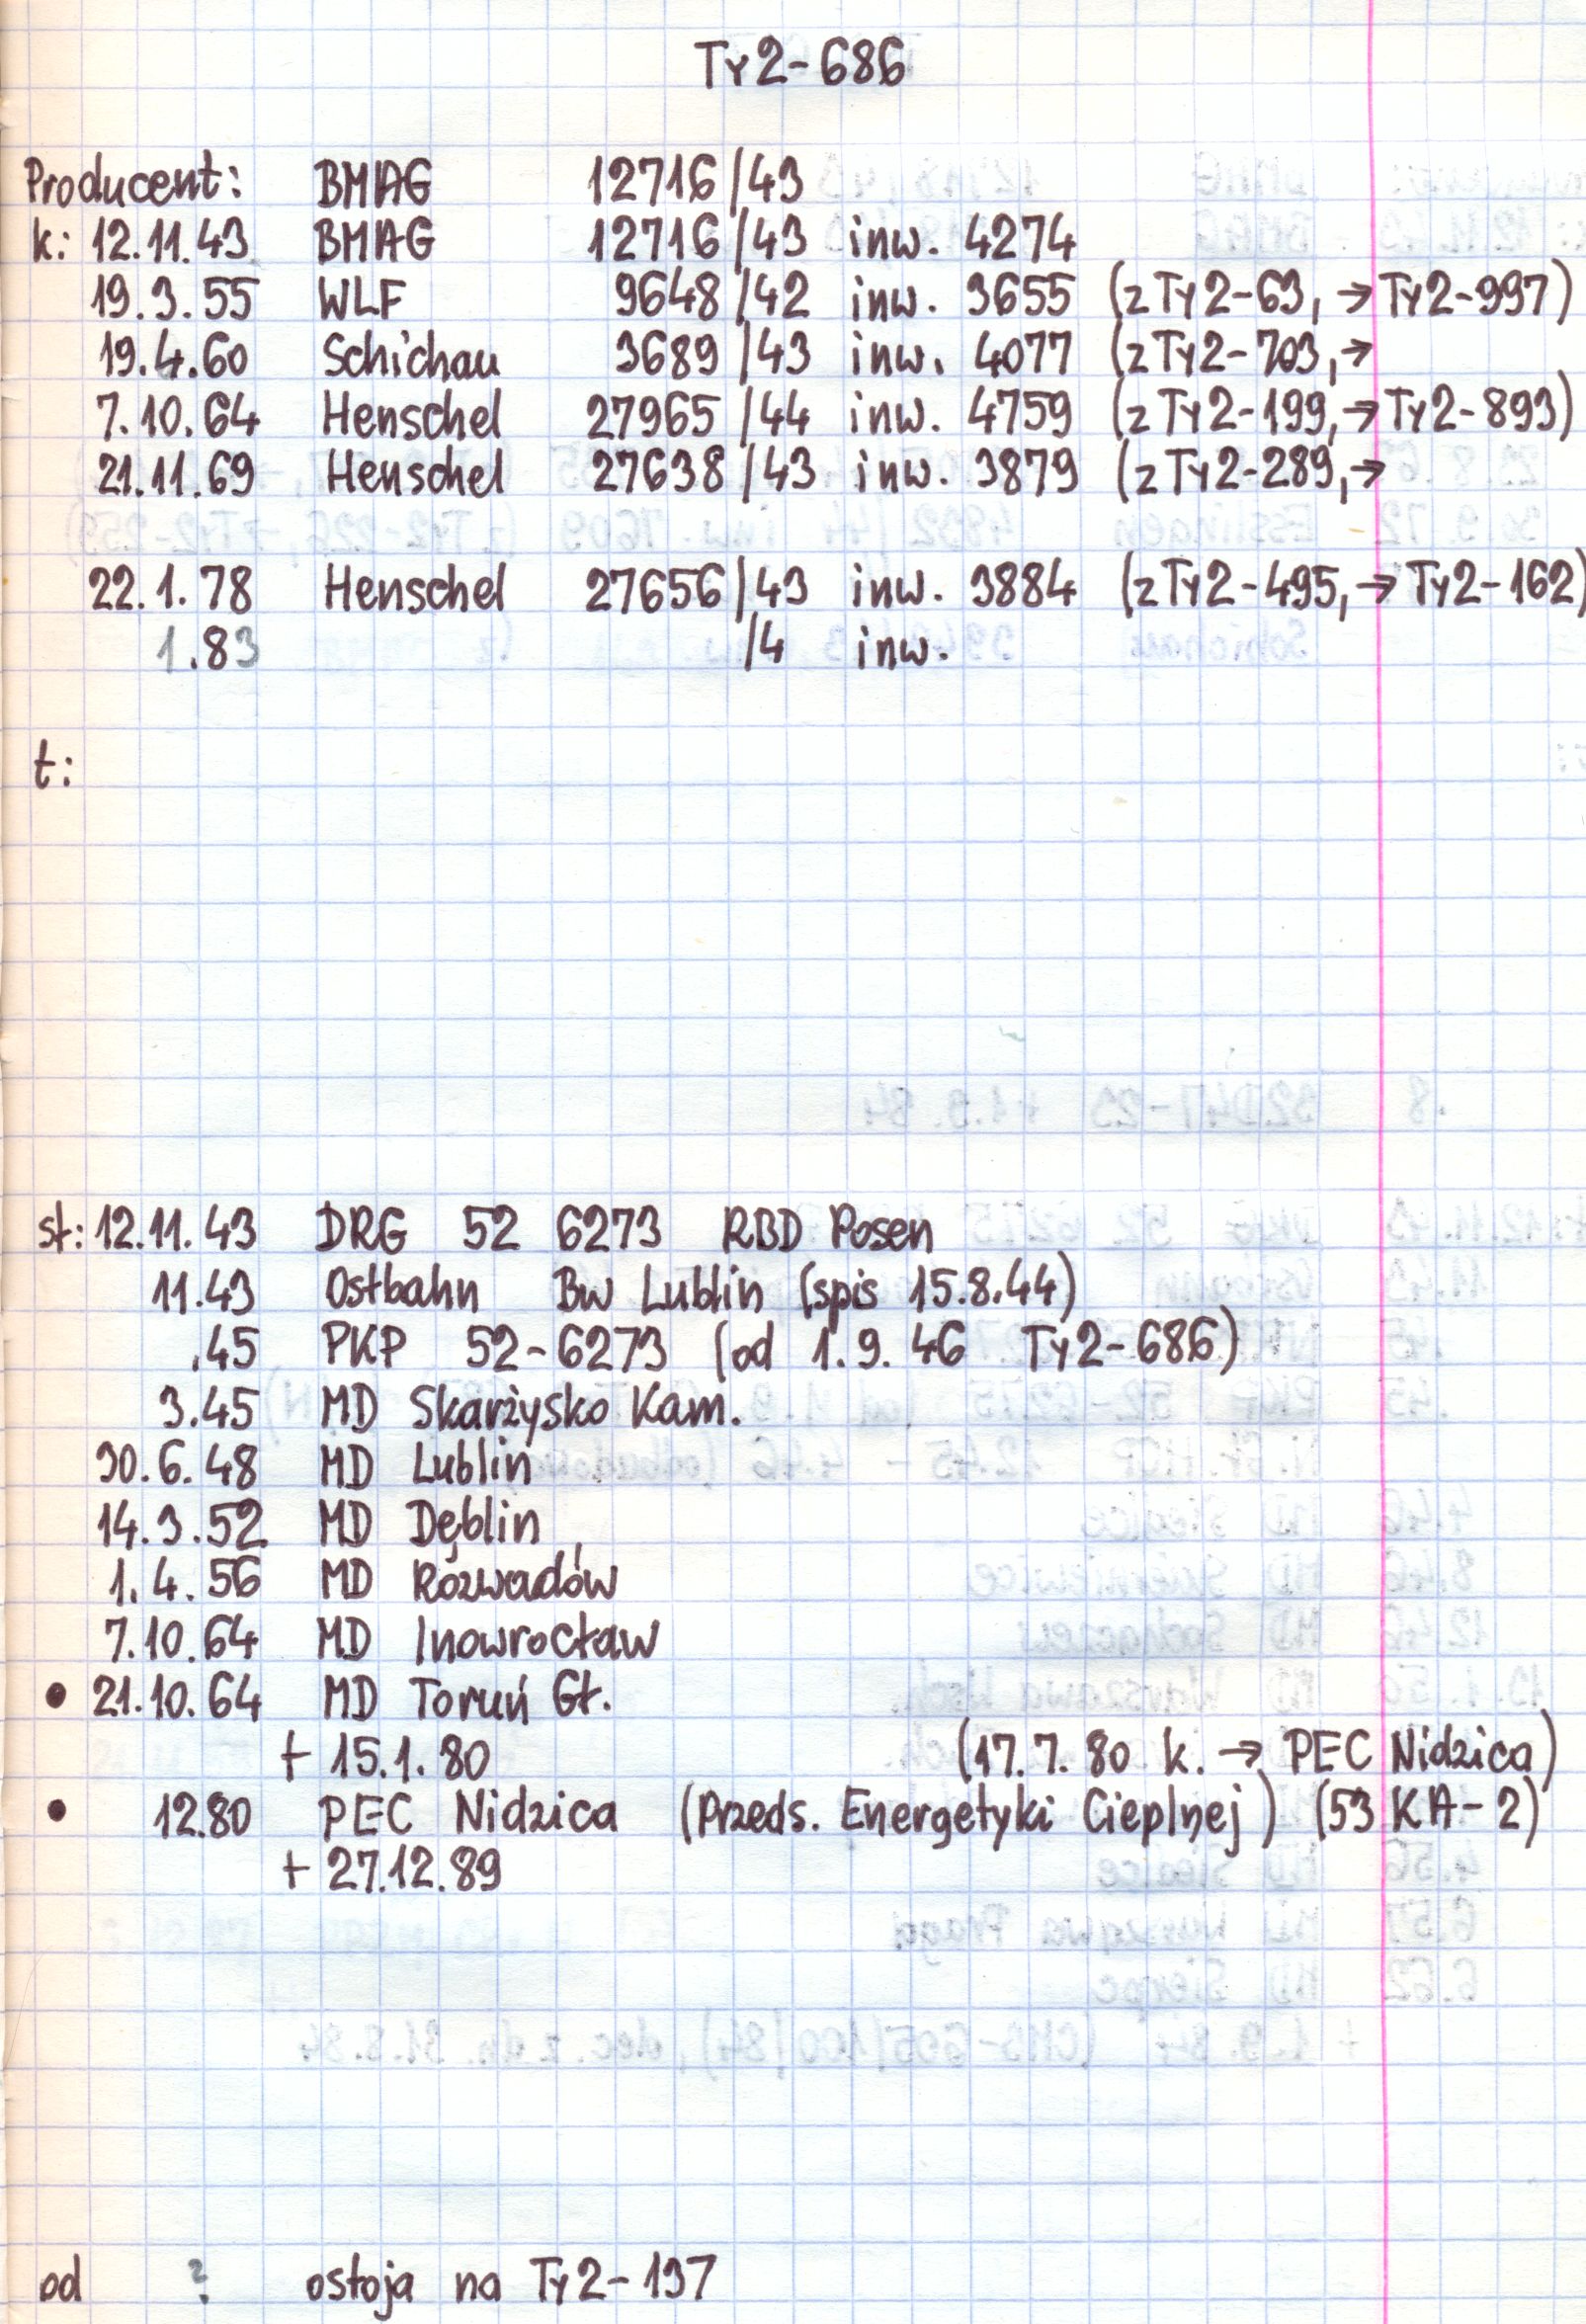 Ty2-686
Producent: BMAG 12716/43
k: 12.11.43 BMAG 12716/43 inw. 4274
19.3.55 WLF 9648/42 inw. 3655 (z Ty2-63, → Ty2-997)
19.4.60 Schichau 3689/43 inw. 4077 (z Ty2-703, →
7.10.64 Henschel 27965/44 inw. 4759 (z Ty2-199, → Ty2-893)
21.11.69 Henschel 27638/43 inw. 3879 (z Ty2-289, →
22.1.78 Henschel 27656/43 inw. 3884 (z Ty2-495, → Ty2-162)
1.83 /4 inw.
t:
st: 12.11.43 DRG 52 6273 RBD Posen
11.43 Ostbahn Bw Lublin (spis 15.8.44)
.45 PKP 52-6273 (od 1.9.46 Ty2-686)
3.45 MD Skarżysko Kam.
30.6.48 MD Lublin
14.3.52 MD Dęblin
1.4.56 MD Rozwadów
7.10.64 MD Inowrocław
• 21.10.64 MD Toruń Gł.
+ 15.1.80 (17.7.80 k. → PEC Nidzica)
• 12.80 PEC Nidzica (Przeds. Energetyki Cieplnej) (53 KA-2)
+ 27.12.89
od ? ostoja na Ty2-137